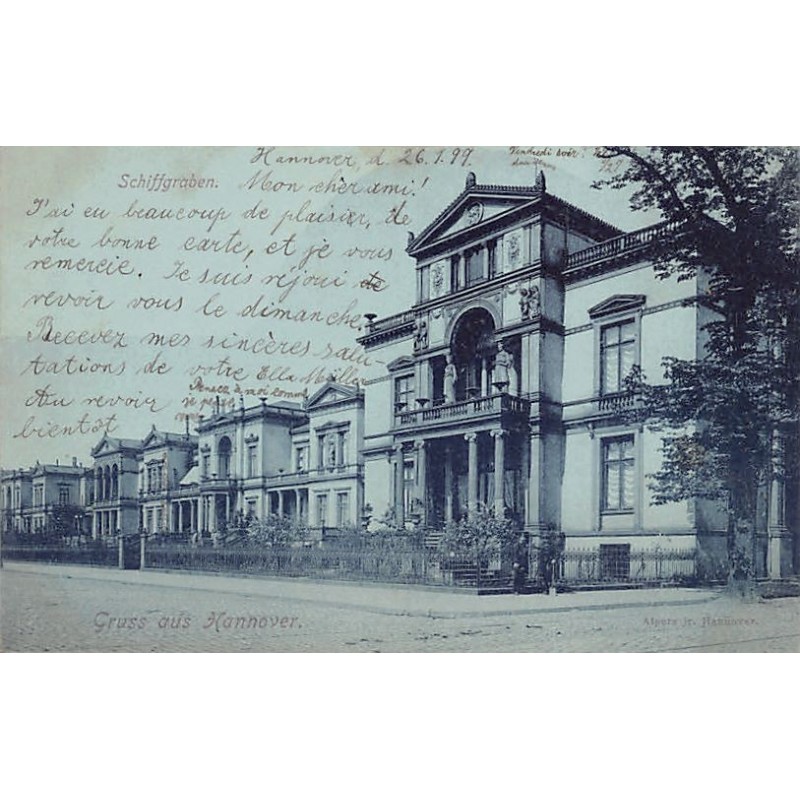 Hannover, d. 26.1.99.
Vendredi soir:
Schiffgraben.
Mon cher ami!
J'ai eu beaucoup de plaisir, de
votre bonne carte, et je vous
remercie. Je suis réjoui de
revoir vous le dimanche.
Recevez mes sincères salu-
tations de votre Ella Müller
Au revoir
bientôt
Gruss aus Hannover.
Alpers jr. Hannover.